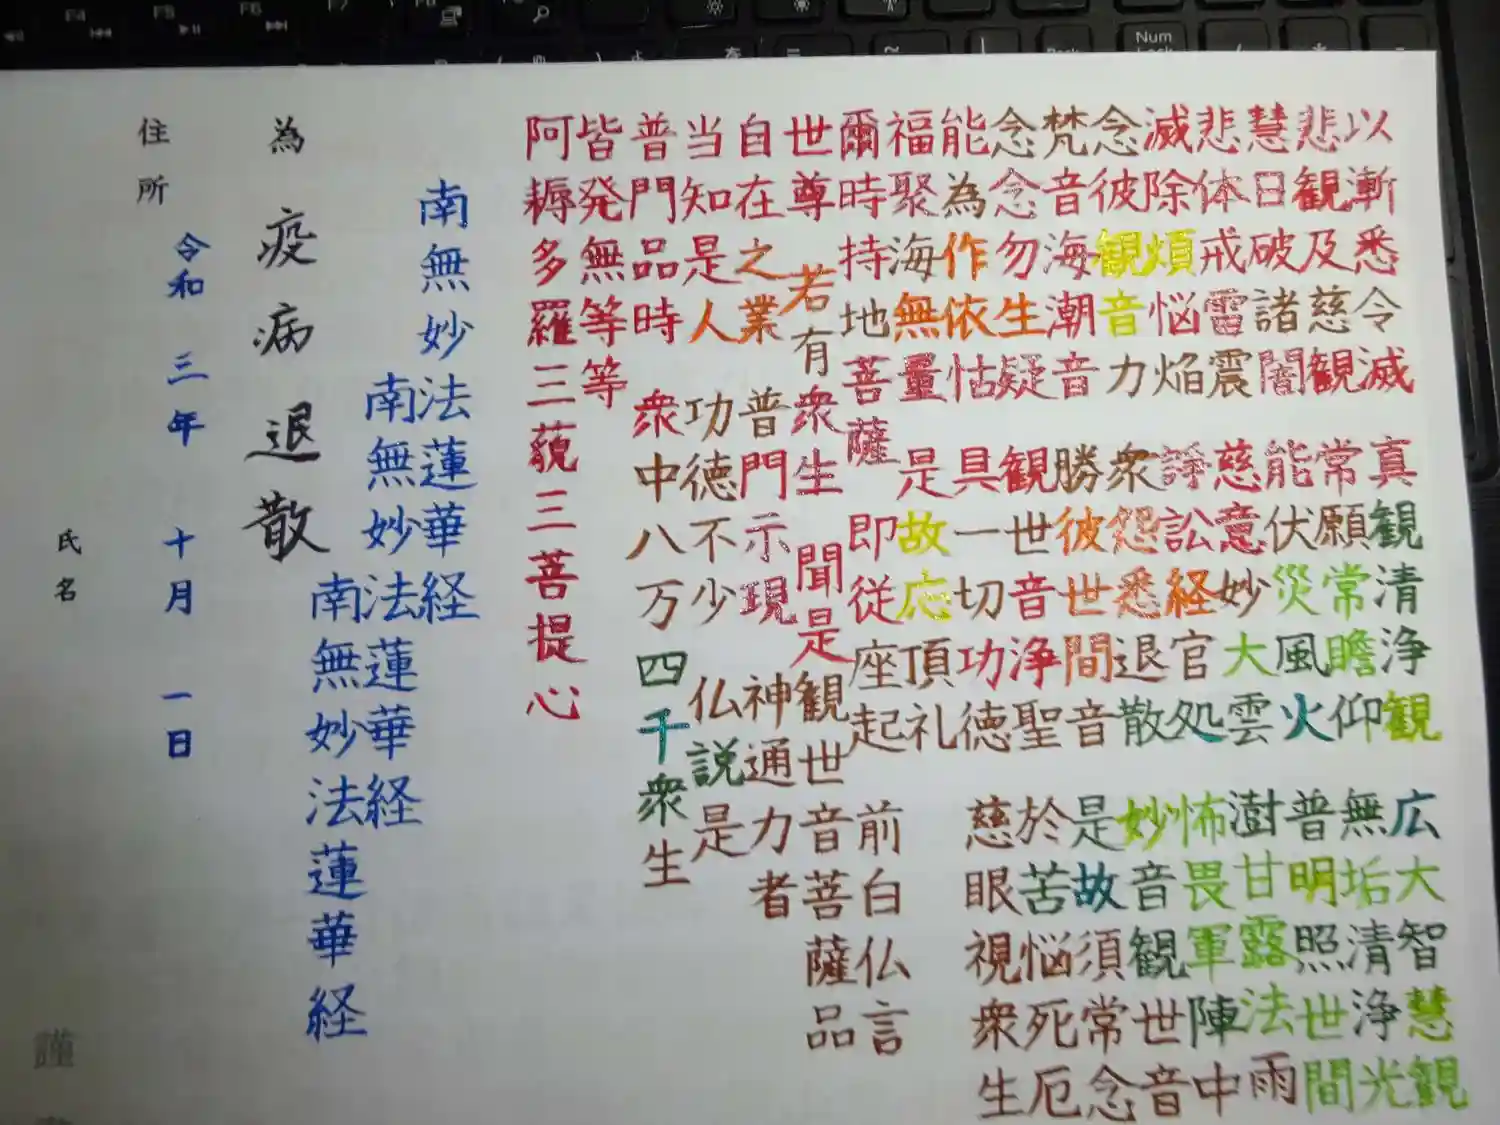 以漸悉令滅 真観清浄観 広大智慧観
悲観及慈観 常願常瞻仰 無垢清浄光
慧日破諸闇 能伏災風火 普明照世間
悲体戒雷震 慈意妙大雲 澍甘露法雨
滅除煩悩焔 諍訟経官処 怖畏軍陣中
念彼観音力 衆怨悉退散 妙音観世音
梵音海潮音 勝彼世間音 是故須常念
念念勿生疑 観世音浄聖 於苦悩死厄
能為作依怙 具一切功徳 慈眼視衆生
福聚海無量 是故応頂礼
爾時持地菩薩 即従座起 前白仏言
世尊 若有衆生 聞是観世音菩薩品
自在之業 普門示現 神通力者
当知是人 功徳不少 仏説是
普門品時 衆中八万四千衆生
皆発無等等
阿耨多羅三藐三菩提心
南無妙法蓮華経
南無妙法蓮華経
南無妙法蓮華経
為 疫病退散
令和三年十月一日
住所
氏名
謹